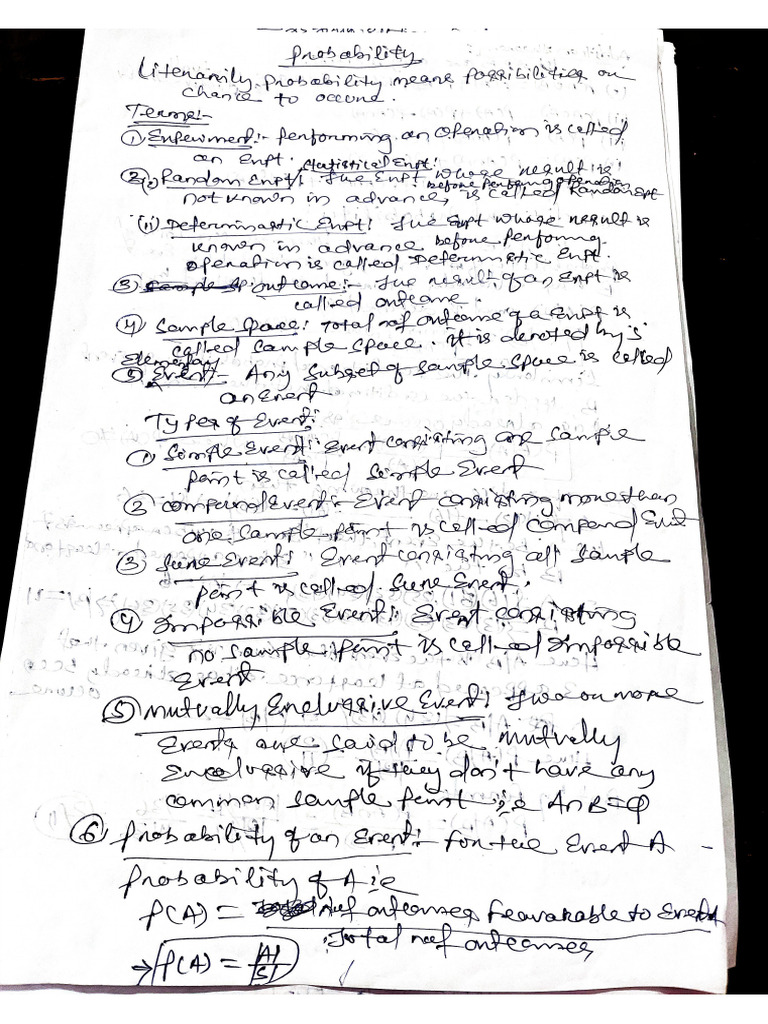 Probability
Literarily probability means possibilities or
chance to occure.
Terms:-
① Experiment:- performing an operation is called
an Expt. Statistical Expt:
②(i) Random Expt: The Expt whose result is
not known in advance, before performing operation is called Random Expt
(ii) Deterministic Expt: The Expt whose result is
known in advance before performing
operation is called Deterministic Expt.
③ outcome:- The result of an Expt is
called outcome.
④ Sample space: Total no of outcome of a Expt is
called sample space. it is denoted by 's'
Elementary
⑤ Event:- Any subset of sample space is called
an Event
Types of Event:
① Simple Event: Event consisting one sample
point is called simple Event
② compound Event:- Event consisting more than
one sample point is called compound Event
③ Sure Event: Event consisting all sample
point is called Sure Event.
④ Impossible Event: Event consisting
no sample point is called Impossible
Event
⑤ mutually Exclussive Event: Two or more
Events are said to be mutually
Exclussive if they don't have any
common sample point i.e A∩B=φ
⑥ Probability of an Event:- for the Event A -
Probability of A is
P(A) = no of outcomes feavarable to Event A
Total no of outcomes
→ P(A) = |A| / |S|